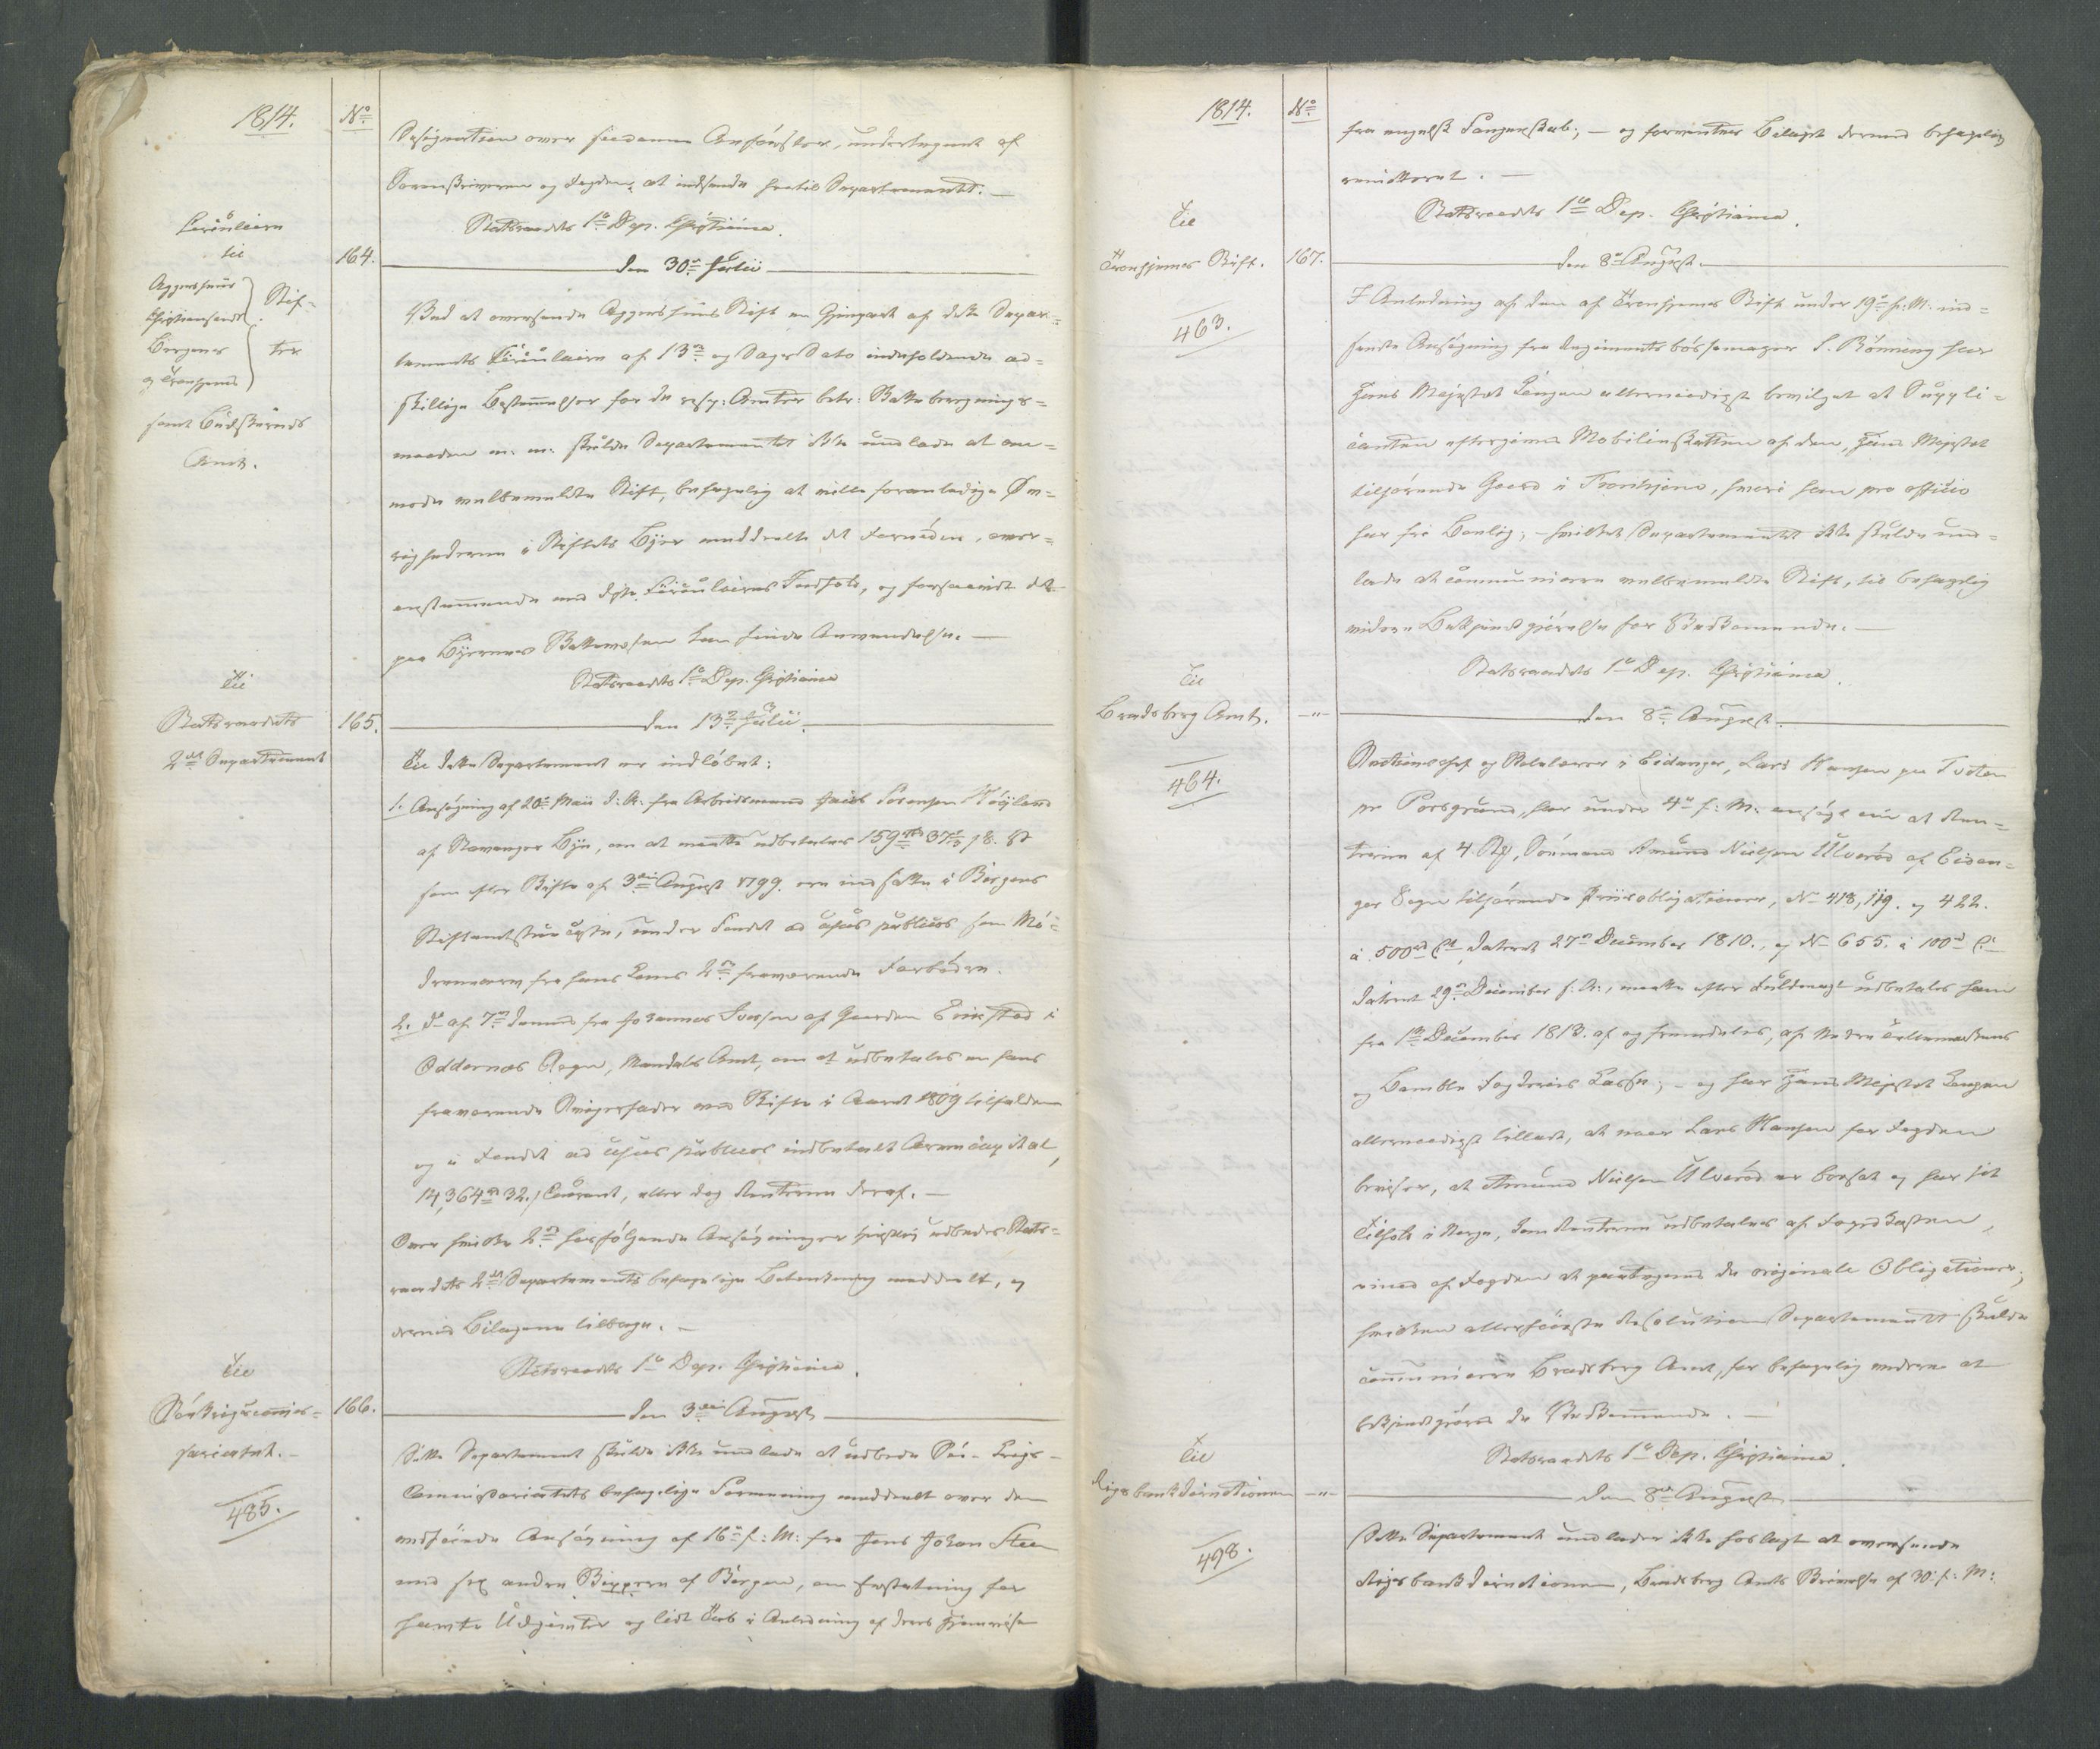 1814.
No
Designation over saadanne Anførsler, undertegnet af
Sorenskriveren og Fogden, at indsende hertil Departementet. —
Statsraadets 1ste Dep. Christiania.
Circulaire
til
Aggershuus
Christiansands
Bergens
og Tronhjems
Stif=
ter
samt Budskeruds
Amt.
164.
den 30te Julii
Ved at oversende Aggershuus Stift en Gjenpart af dette Depar=
tements Circulaire af 13de og Dags Dato indeholdende ad=
skillige Bestemmelser for de resp: Amter betr: Skatteberegnings=
maaden m: m: skulde Departementet ikke undlade at an=
mode velbemeldte Stift, behagelig at ville foranledige Øv=
righederne i Stiftets Byer meddeelt det Fornødne, over=
eensstemmende med disse Circulairers Indhold, og forsaavidt det
paa Byernes Skattevæsen kan finde Anvendelse. —
Statsraadets 1ste Dep. Christiania
Til
Statsraadets
2det Departement
165.
den 13de Julii.
Til dette Departement er indløbet:
1. Ansøgning af 20de Maii d: A: fra Arbeidsmand Jacob Sørensen Høyland
af Stavanger Bye, om at maatte udbetales 159 rd 37 2/3 s D: C:
som efter Skifte af 3die August 1799. ere indsatte i Bergens
Stiftamtstue Casse, under Fondet ad usus publicos som Mø=
drenearv for hans Kones 2de fraværende Farbrødre.
2. Do af 7de dennes fra Johannes Svensen af Gaarden Eeikstad i
Oddernes Sogn, Mandals Amt, om at udbetales en hans
fraværende Svigerfader ved Skifte i Aaret 1809 tilfalden
og i Fondet ad usus publicos indbetalt Arvecapital,
14,364 rd 32 s Courant, eller dog Renterne deraf. —
Over hvilke 2de hosfølgende Ansøgninger tjenstlig udbedes Stats=
raadets 2det Departements behagelige Betænkning meddeelt, og
dermed Bilagene tilbage. —
Statsraadets 1ste Dep. Christiania.
Til
Søekrigscommis=
sariatet. —
485.
166.
den 3die August
Dette Departement skulde ikke undlade at udbede Søe-Krigs-
Commissariatets behagelige Formening meddeelt over den
vedføiede Ansøgning af 16de f: M: fra Jens Johan Steen
med sex andre Skippere af Bergen, om Erstatning for
havte Udgivter og lidt Tab i Anledning af deres Hjemreise
1814.
No
fra engelsk Fangenskab; — og forventes Bilaget dermed behagelig
remitteret. —
Statsraadets 1ste Dep. Christiania.
Til
Tronhjems Stift.
463.
167.
den 8de August.
I Anledning af den af Tronhjems Stift under 19de f: M: ind=
sendte Ansøgning fra Regimentsbøssemager S. Rönning har
Hans Majestæt Kongen allernaadigst bevilget at Suppli=
canten eftergives Mobilieskatten af den, Hans Majestæt
tilhørende Gaard i Tronhjem, hvori han pro officio
har fri Bolig; — hvilket Departementet ikke skulde und=
lade at communicere velbemeldte Stift, til behagelig
videre Bekjendtgjørelse for Vedkommende. —
Statsraadets 1ste Dep. Christiania.
Til
Bradsberg Amt.
464.
—"—
den 8de August.
Sectionschef og Skolelærer i Eidanger, Lars Hansen paa Tveten
pr Porsgrund, har under 4de f: M: ansøgt om at Ren=
terne af 4. Søemand Amund Nielsen Ulverød af Eidan=
ger Sogn tilhørende Priisobligationer, No 418, 419. og 422.
à 500 rd Ct dateret 27de December 1810., og No 655. à 100 rd Ct
dateret 29de December s: A:, maatte efter Fuldmagt udbetales ham
fra 1ste December 1813. af og fremdeles, af Nedre Tellemarkens
og Bamble Fogderies Casse; — og har Hans Majestæt Kongen
allernaadigst tilladt, at naar Lars Hansen for Fogden
beviser, at Amund Nielsen Ulverød er bosat og har sit
Tilhold i Norge, kan Renterne udbetales af Fogedkassen,
imod af Fogden at paategnes de originale Obligationer;
hvilken allerhøieste Resolution Departementet skulde
communicere Bradsberg Amt, for behagelig videre at
bekjendtgjøres de Vedkommende. —
Statsraadets 1ste Dep. Christiania.
Til
Rigsbankdirectionen
498.
—"—
den 8de August
Dette Departement undlader ikke hoslagt at oversende
Rigsbankdirectionen, Bradsberg Amts Skrivelse af 30: f: M: